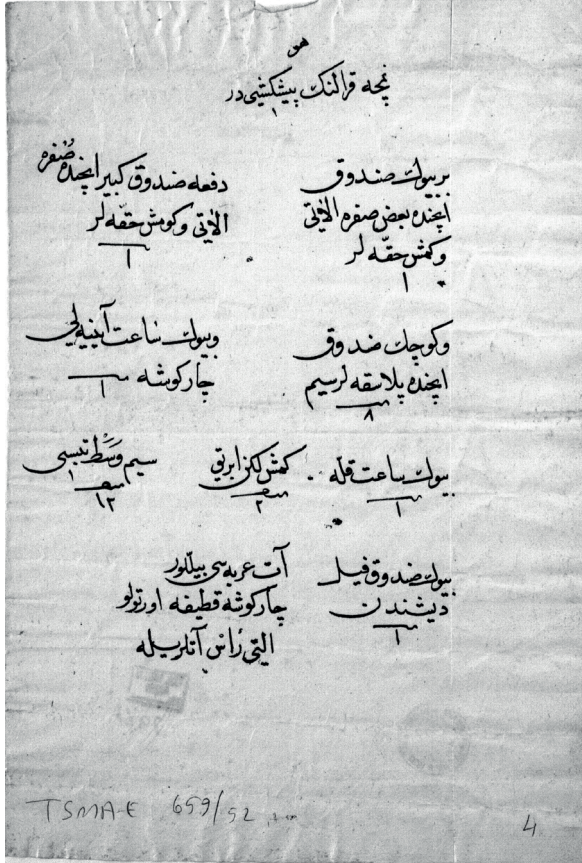 هو
نمچه قرالنك پيشكشيدر
بر بيوك صندوق
ايچنده بعض صفره الاتی
وكمش حقه لر
١
دفعه صندوق كبير ايچنده صفره
الاتی وكومش حقه لر
١
وكوچك صندوق
ايچنده پلاسقه لر سيم
٨
وبيوك ساعت آيينه لی
چاركوشه ١
بيوك ساعت قله
١
كمش لكن ابرتی
٢
سيم وسط تبسی
١٢
بيوك صندوق فيل
ديشندن
١
آت عربه سی بيللور
چاركوشه قطيفه اورتولو
التی رأس آتلريله
TSMA-E 659/52
4